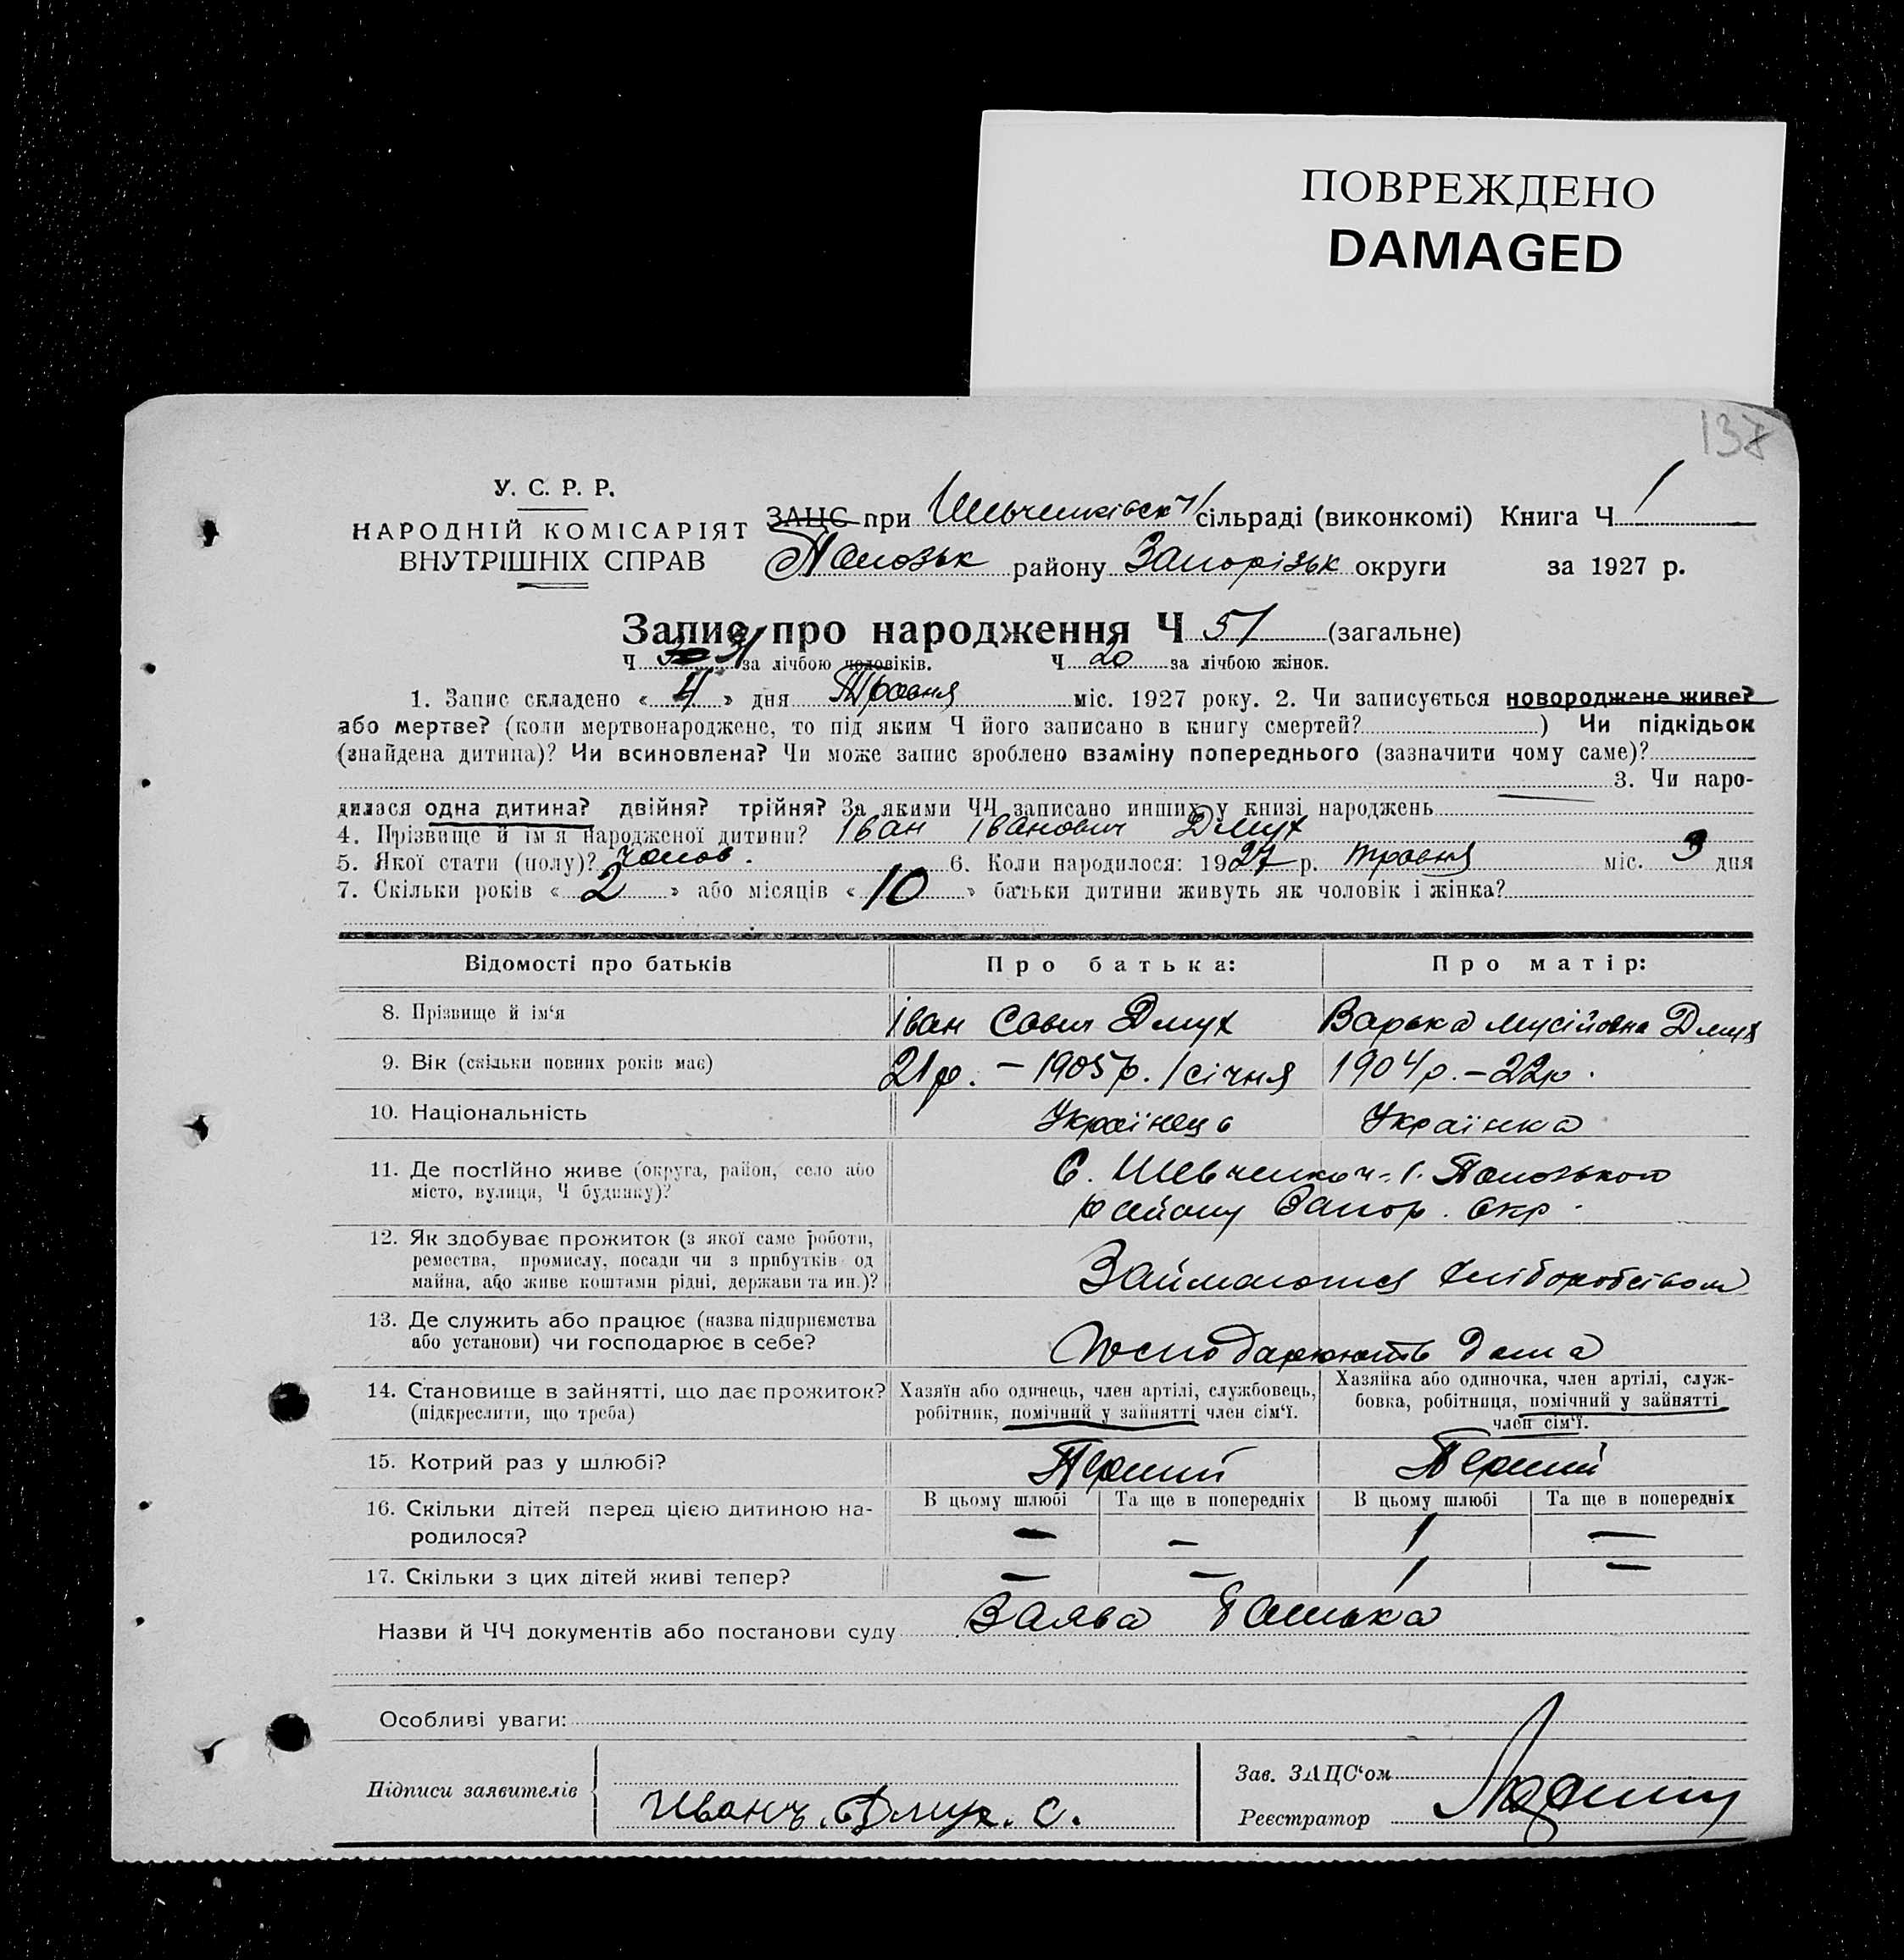 ПОВРЕЖДЕНО
DAMAGED
138
У. С. Р. Р.
НАРОДНІЙ КОМІСАРІЯТ
ВНУТРІШНІХ СПРАВ
ЗАЦС при Шевченківськ сільраді (виконкомі) Книга Ч 1
Полозьк району Запорізьк округи за 1927 р.
Запис про народження Ч 51 (загальне)
Ч 30 31 за лічбою чоловіків. Ч 20 за лічбою жінок.
1. Запис складено « 4 » дня Травня міс. 1927 року. 2. Чи записується новороджене живе?
або мертве? (коли мертвонароджене, то під яким Ч його записано в книгу смертей? ) Чи підкідьок
(знайдена дитина)? Чи всиновлена? Чи може запис зроблено взаміну попереднього (зазначити чому саме)?
3. Чи наро-
дилася одна дитина? двійня? трійня? За якими ЧЧ записано инших у книзі народжень
4. Прізвище й ім'я народженої дитини? Іван Іванович Дмух
5. Якої стати (полу)? чолов. 6. Коли народилося: 1927 р. травня міс. 3 дня
7. Скільки років « 2 » або місяців « 10 » батьки дитини живуть як чоловік і жінка?
Відомості про батьків Про батька: Про матір:
8. Прізвище й ім'я Іван Савич Дмух Варька Мусійовна Дмух
9. Вік (скільки повних років має) 21 р. – 1905 р. 1 січня 1904 р. – 22 р.
10. Національність Українець Українка
11. Де постійно живе (округа, район, село або
місто, вулиця, Ч будинку)?
С. Полозького
району Запор. Окр.
12. Як здобуває прожиток (з якої саме роботи,
ремества, промислу, посади чи з прибутків од
майна, або живе коштами рідні, держави та ин.)?
Займаються хліборобством
13. Де служить або працює (назва підприємства
або установи) чи господарює в себе?
Господарюють дома
14. Становище в зайнятті, що дає прожиток?
(підкреслити, що треба)
Хазяїн або одинець, член артілі, службовець,
робітник, помічний у зайнятті член сім'ї.
Хазяйка або одиночка, член артілі, служ-
бовка, робітниця, помічний у зайнятті
член сім'ї.
15. Котрий раз у шлюбі? Перший Перший
16. Скільки дітей перед цією дитиною на-
родилося?
В цьому шлюбі Та ще в попередніх В цьому шлюбі Та ще в попередніх
— — 1 —
17. Скільки з цих дітей живі тепер? — — 1 —
Назви й ЧЧ документів або постанови суду Заява батька
Особливі уваги:
Підписи заявителів
Иванъ. Дмух. С.
Зав. ЗАЦС'ом
Реєстратор